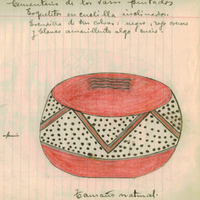 Cementerio de los vasos pintados
Esqueletos en cuclilla inclinados.
de tres colores: negro, rojo
y blanco amarillento algo
Tamaño natural.